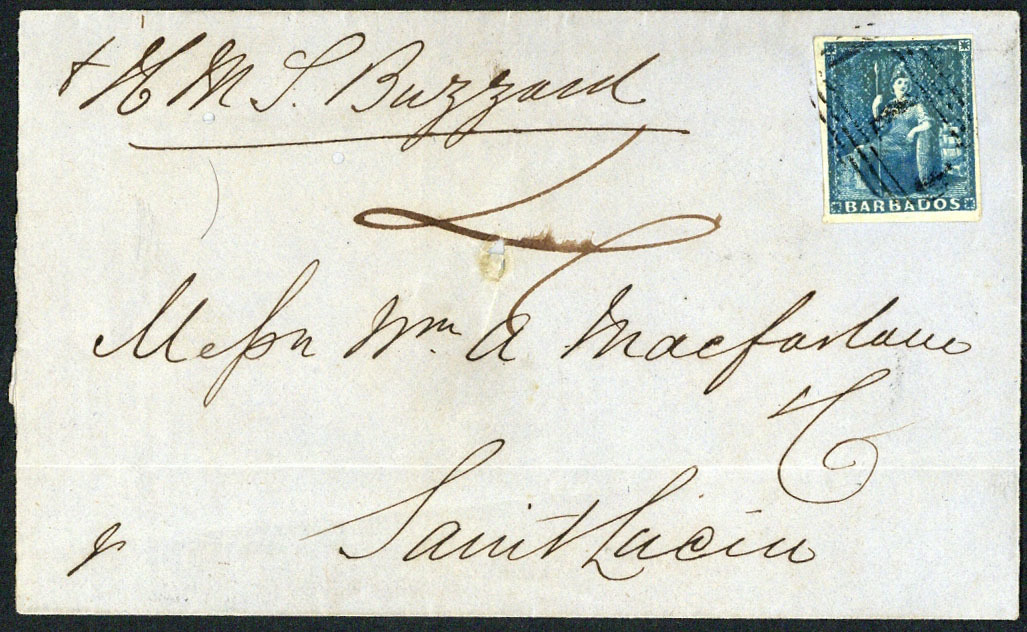 + H M S. Buzzard
BARBADOS
Messrs Wm A Macfarlane
Saint Lucia